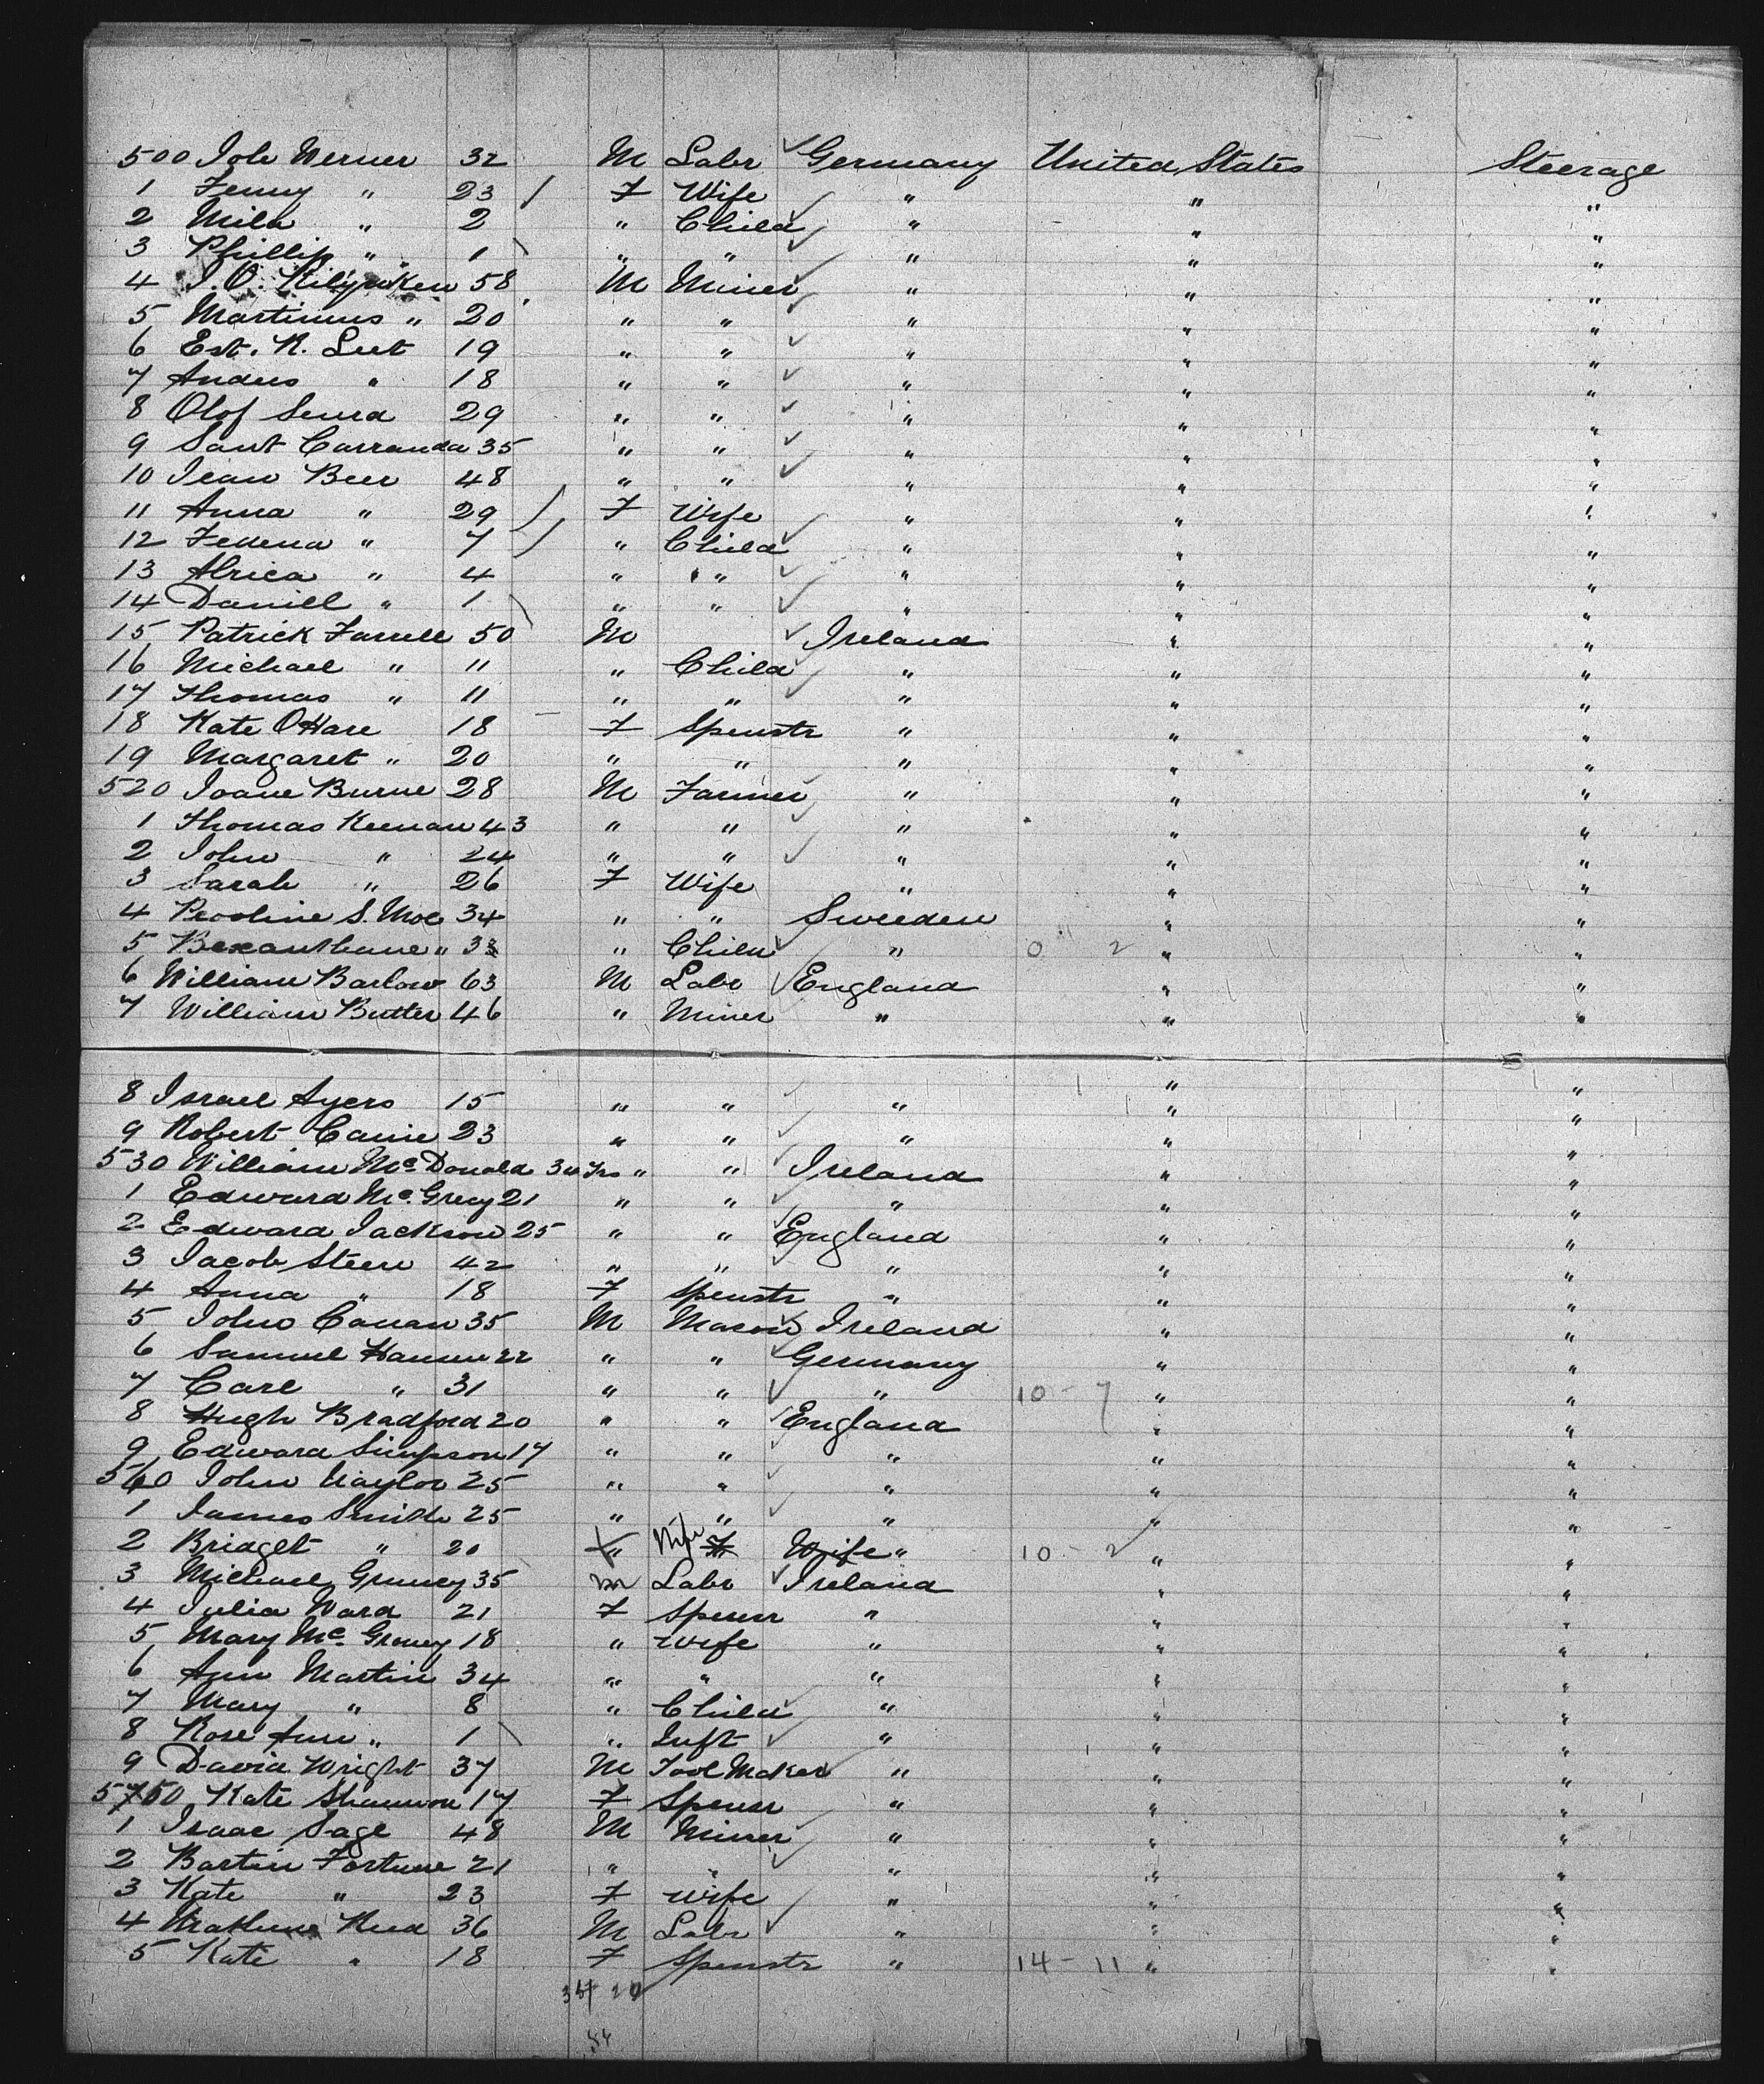 500 Joh Werner 32 M Labr ✓ Germany United States Steerage
1 Jenny " 23 F Wife " " "
2 Mila " 2 " Child ✓ " " "
3 Phillip " 1 " " ✓ " " "
4 J. O. 58 M Miner ✓ " " "
5 Martinus " 20 " " ✓ " " "
6 Est. R. Leet 19 " " ✓ " " "
7 Anders " 18 " " ✓ " " "
8 Olof 29 " " ✓ " " "
9 Sant Carranda 35 " " ✓ " " "
10 Jean Beer 48 " " ✓ " " "
11 Anna " 29 F Wife " " "
12 " 7 " Child ✓ " " "
13 Alrica " 4 " " ✓ " " "
14 Daniell " 1 " " ✓ " " "
15 Patrick Farrell 50 M ✓ Ireland " "
16 Michael " 11 " Child ✓ " " "
17 Thomas " 11 " " ✓ " " "
18 Kate OHare 18 F Spenstr " " "
19 Margaret " 20 " " " " "
520 Joane Burne 28 M Farmer ✓ " " "
1 Thomas Keenan 43 " " ✓ " " "
2 John " 24 " " ✓ " " "
3 Sarah " 26 F Wife " " "
4 Peroline S. Moe 34 " " Sweeden " "
5 " 33 " Child ✓ " 0 2 " "
6 William Barlow 63 M Labr ✓ England " "
7 William Butter 46 " Miner " " "
8 Israel Ayers 15 " " ✓ " " "
9 Robert Caine 23 " " ✓ " " "
530 William Mc Donald Yrs " " ✓ Ireland " "
1 Edward Mc. Grey 21 " " ✓ " " "
2 Edward Jackson 25 " " ✓ England " "
3 Jacob Steen 42 " " ✓ " " "
4 Anna " 18 F Spenstr " " "
5 John Canan 35 M Mason ✓ Ireland " "
6 Samuel Hansen 22 " " ✓ Germany " "
7 Carl " 31 " " ✓ " 10 - 7 " "
8 Hugh Bradford 20 " " ✓ England " "
9 Edward Simpson 17 " " ✓ " " "
540 John Naylor 25 " " ✓ " " "
1 James Smith 25 " " ✓ " " "
2 Bridget " 20 " Wife Wife " 10 - 2 " "
3 Michael 35 m Labr ✓ Ireland " "
4 Julia Ward 21 F Spenr " " "
5 Mary Mc 18 " Wife " " "
6 Ann Martin 34 " " " " "
7 Mary " 8 " Child ✓ " " "
8 Rose Ann " 1 " Inft ✓ " " "
9 David Wright 37 M Tool Maker ✓ " " "
550 Kate Shannon 17 F Spenr " " "
1 Isaac Sage 48 M Miner ✓ " " "
2 Bartin Fortune 21 " " ✓ " " "
3 Kate " 23 F Wife " " "
4 36 M Labr ✓ " " "
5 Kate " 18 F Spenstr " 14 - 11 " "